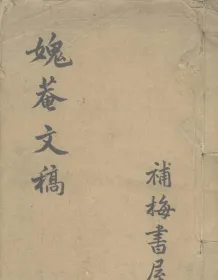 媿菴文稿
補梅書屋